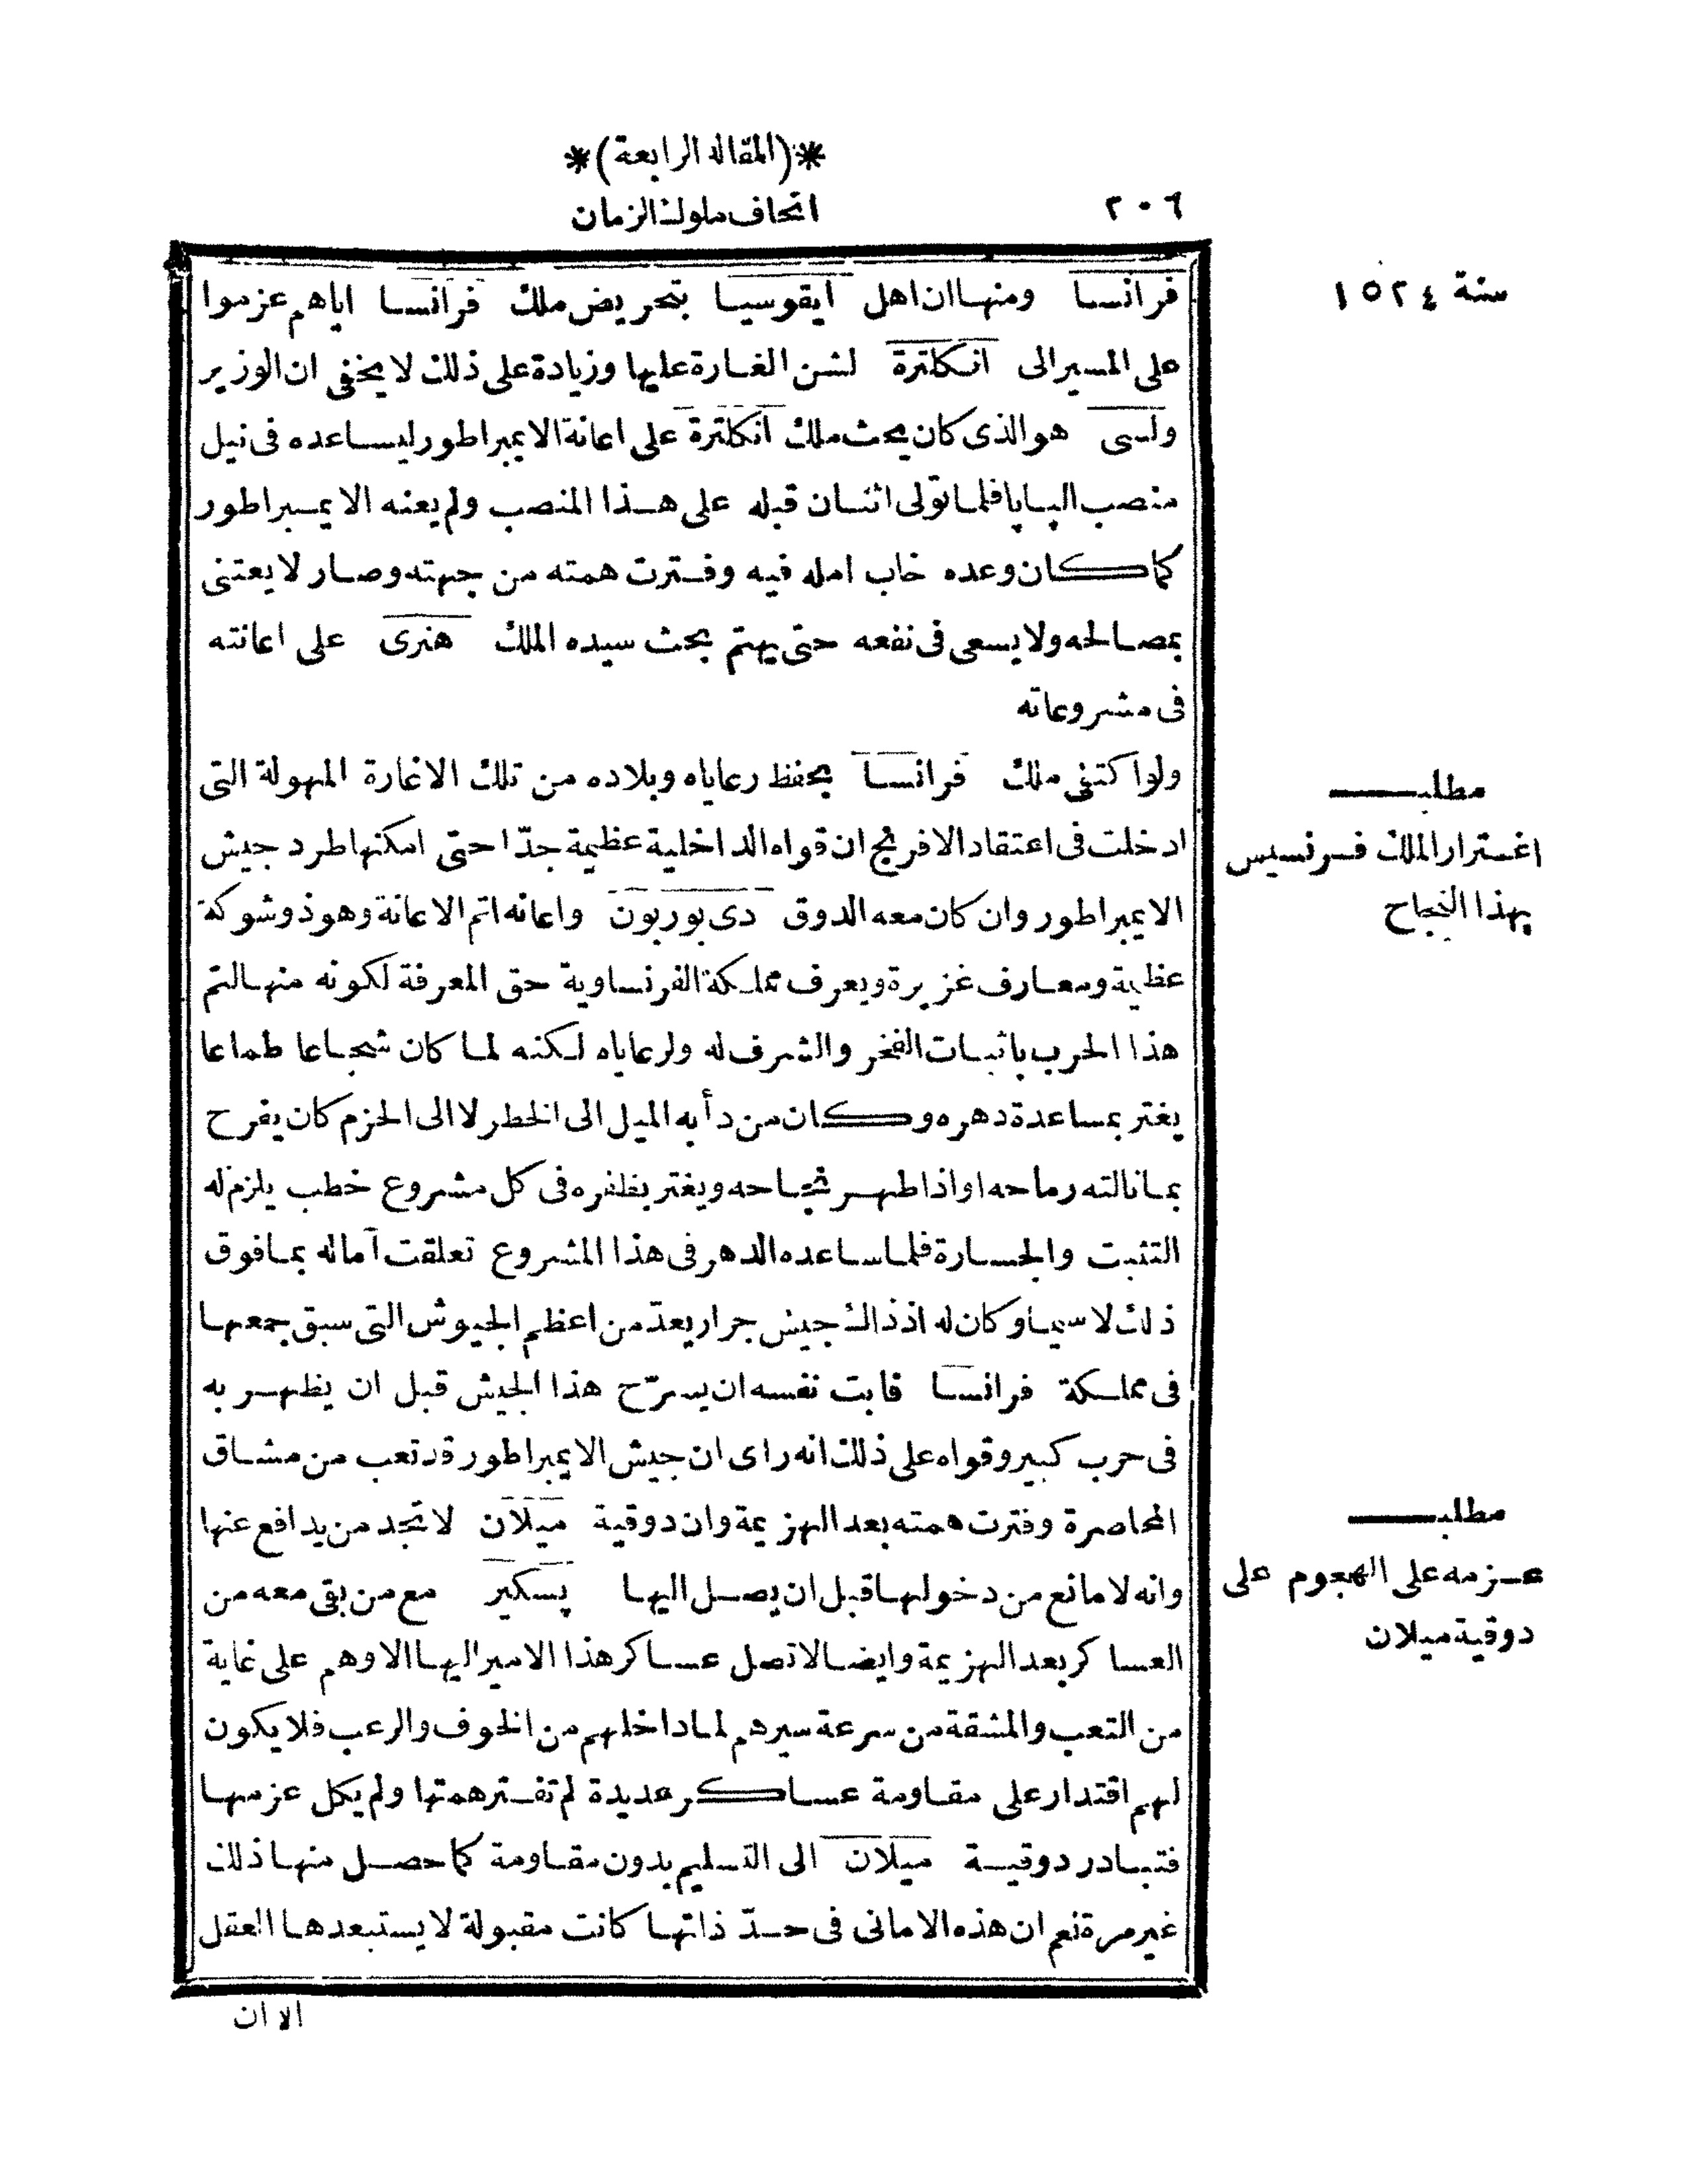 *(المقالة الرابعة)*
٢٠٦
اتحاف ملوك الزمان
سنة ١٥٢٤
فرانسا ومنها ان اهل ايقوسيا بتحريض ملك فرانسا اياهم عزموا
على المسير الى انكلترة لشن الغارة عليها وزيادة على ذلك لا يخفى ان الوزير
ولسى هو الذى كان يحث ملك انكلترة على اعانة الايمبراطور ليساعده فى نيل
منصب الپاپا فلما تولى اثنان قبله على هذا المنصب ولم يعنه الايمبراطور
كما كان وعده خاب امله فيه وفترت همته من جهته وصار لا يعتنى
بمصالحه ولا يسعى فى نفعه حتى يهتم بحث سيده الملك هنرى على اعانته
فى مشروعاته
ولو اكتفى ملك فرانسا بحفظ رعاياه وبلاده من تلك الاغارة المهولة التى
ادخلت فى اعتقاد الافرنج ان قواه الداخلية عظيمة جدّا حتى امكنها طرد جيش
الايمبراطور وان كان معه الدوق دى بوربون واعانه اتم الاعانة وهو ذو شوكة
عظيمة ومعارف غزيرة ويعرف مملكة الفرنساوية حق المعرفة لكونه منها لتم
هذا الحرب باثبات الفخر والشرف له ولرعاياه لكنه لما كان شجاعا طماعا
يغتر بمساعدة دهره وكان من دأبه الميل الى الخطر لا الى الحزم كان يفرح
بما نالته رماحه او اذا ظهر نجاحه ويغتر بظفره فى كل مشروع خطب يلزم له
التثبت والجسارة فلما ساعده الدهر فى هذا المشروع تعلقت آماله بما فوق
ذلك لا سيما وكان له اذ ذاك جيش جرار يعدّ من اعظم الجيوش التى سبق جمعها
فى مملكة فرانسا فابت نفسه ان يسرّح هذا الجيش قبل ان يظهر به
فى حرب كبير وقواه على ذلك انه راى ان جيش الايمبراطور قد تعب من مشاق
المحاصرة وفترت همته بعد الهزيمة وان دوقية ميلان لا تجد من يدافع عنها
وانه لا مانع من دخولها قبل ان يصل اليها پسكير مع من بقى معه من
العساكر بعد الهزيمة وايضا لا تصل عساكر هذا الامير اليها الا وهم على غاية
من التعب والمشقة من سرعة سيرهم لما داخلهم من الخوف والرعب فلا يكون
لهم اقتدار على مقاومة عساكر عديدة لم تفتر همتها ولم يكل عزمها
فتبادر دوقية ميلان الى التسليم بدون مقاومة كما حصل منها ذلك
غير مرة نعم ان هذه الامانى فى حدّ ذاتها كانت مقبولة لا يستبعدها العقل
الا ان
مطلب
اغترار الملك فرنسيس
بهذا النجاح
مطلب
عزمه على الهجوم على
دوقية ميلان